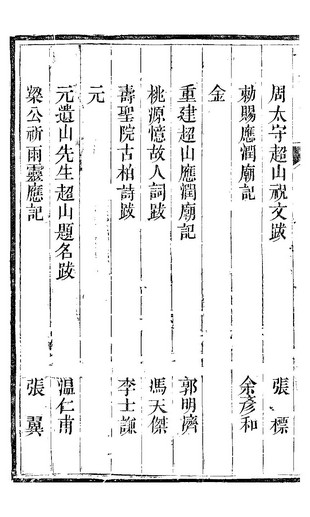 周太守超山祝文跋　張標
勅賜應潤廟記　余彥和
金
重建超山應潤廟記　郭明濟
桃源憶故人詞跋　馮天傑
壽聖院古柏詩跋　李士謙
元
元遺山先生超山題名跋　溫仁甫
梁公祈雨靈應記　張翼